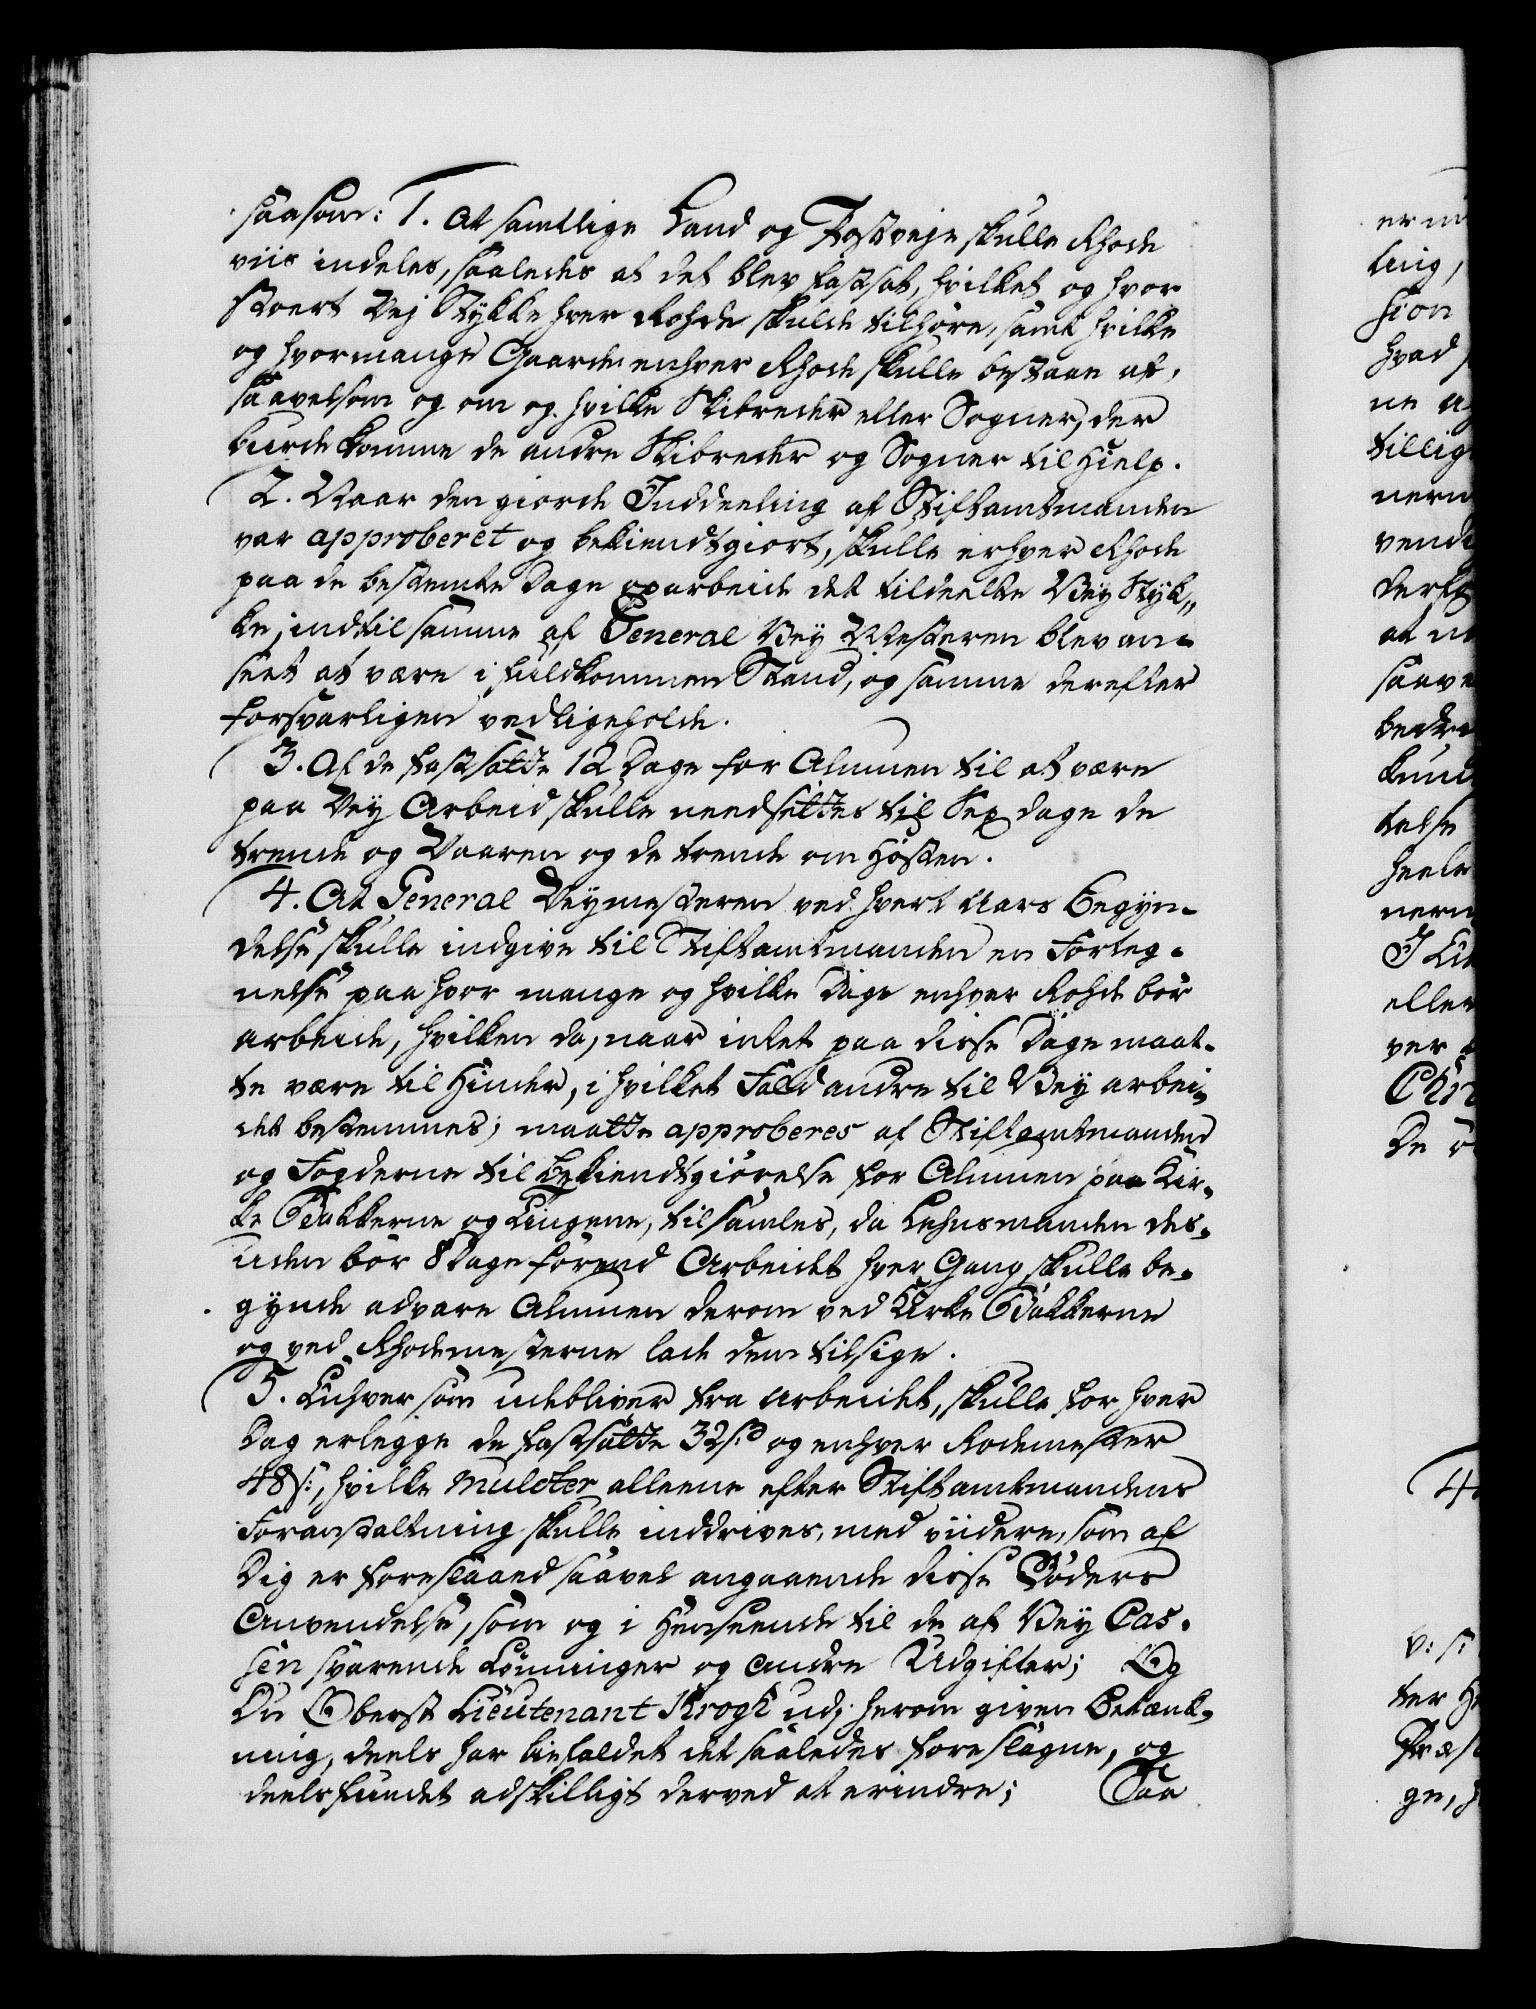 saasom: 1. At samtlige Land og Postveje skulle Rhode
viis indeles, saaledes at det blev fastsat, hvilket og hvor
stoert Vej Stykke hver Rohde skulde tilhøre, samt hvilke
og hvormange Gaarde enhver Rhode skulle bestaae af,
saavelsom og om og hvilke Skibreder eller Sogner, der
burde komme de andre Skibreder og Sogner til Hielp.
2. Naar den giorde Inddeeling af Stiftamtmanden
var approberet og bekiendtgiort, skulle enhver Rhode
paa de bestemte Dage oparbeide det tildeelte Vey Styk„
ke, indtil samme af General Vey Mesteren blev an-
seet at være i fuldkommen Stand, og samme derefter
forsvarligen vedligeholde.
3. Af de fastsatte 12 Dage for Almuen til at være
paa Vey Arbeid skulle needsettes til Sex dage de
trende og Vaaren og de trende om Høsten.
4. At General Veymesteren ved hvert Aars Begyn-
delse skulle indgive til Stiftamtmanden en Forteg-
nelse paa hvor mange og hvilke Dage enhver Rohde bør
arbeide, hvilken da, naar intet paa disse Dage maat-
te være til Hinder, i hvilket Fald andre til Vey arbei-
det bestemmes; maatte approberes af Stiftamtmanden
og Fogderne til Bekiendtgiørelse for Almuen paa Kir-
ke Bakkerne og Tingene, tilsamles, da Lehnsmanden des-
uden bør 8 Dage førend Arbeidet hver Gang skulle be-
gynde advare Almuen derom ved Kirke Bakkerne
og ved Rhodemesterne lade dem tilsige.
5. Enhver som udebliver fra Arbeidet, skulle for hver
Dag erlegge de fastsatte 32 s: og enhver Rodemester
48 s:, hvilke Mulcter alleene efter Stiftamtmandens
Foranstaltning skulle inddrives, med viidere, som af
Dig er foreslaaed saavel angaaende disse Bøders
Anvendelse, som og i Henseende til de af Vey Cas-
sen svarende Lønninger og andre Udgifter; Og
Du Oberst Lieutenant Krogh udj herom given Betænk-
ning, deels har biefaldet det saaledes foreslagne, og
deels fundet adskilligt derved at erindre; Saa